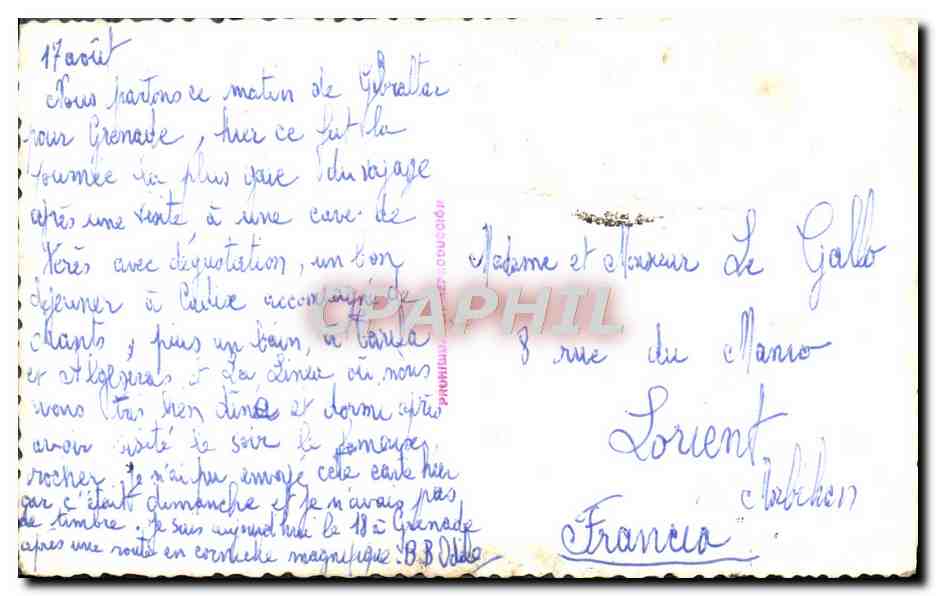 17 août
Nous partons ce matin de Gibraltar
pour Grenade, hier ce fut la
journée la plus gaie du voyage
après une visite à une cave de
Xérès avec dégustation, un bon
déjeuner à Cadix accompagné de
chants, puis un bain, à Tarifa
et Algésiras et La Linea où nous
avons très bien diné et dormi après
avoir visité le soir le fameux
rocher. Je n'ai pu envoyé cete carte hier
car c'était dimanche et je n'avais pas
de timbre. Je suis aujourd'hui le 18 à Grenade
après une route en corniche magnifique. BB Odile
PROHIBIDA LA REPRODUCCIÓN
CPAPHIL
Madame et Monsieur Le Gallo
8 rue du Manio
Lorient
Morbihan
Francia